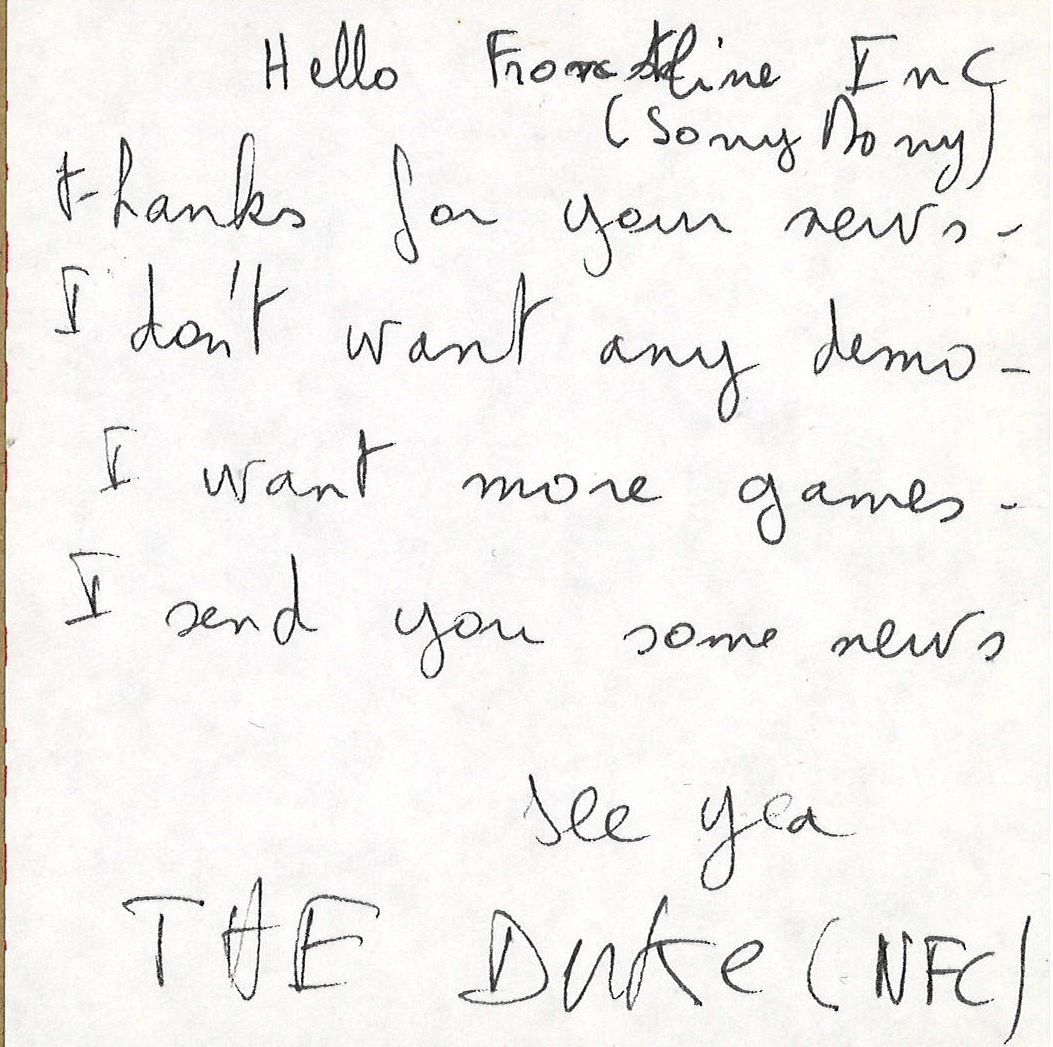 Hello Inc
(Sony Dony)
thanks for your news -
I don't want any demo -
I want more games -
I send you some news
see yea
THE Duke (NFC)